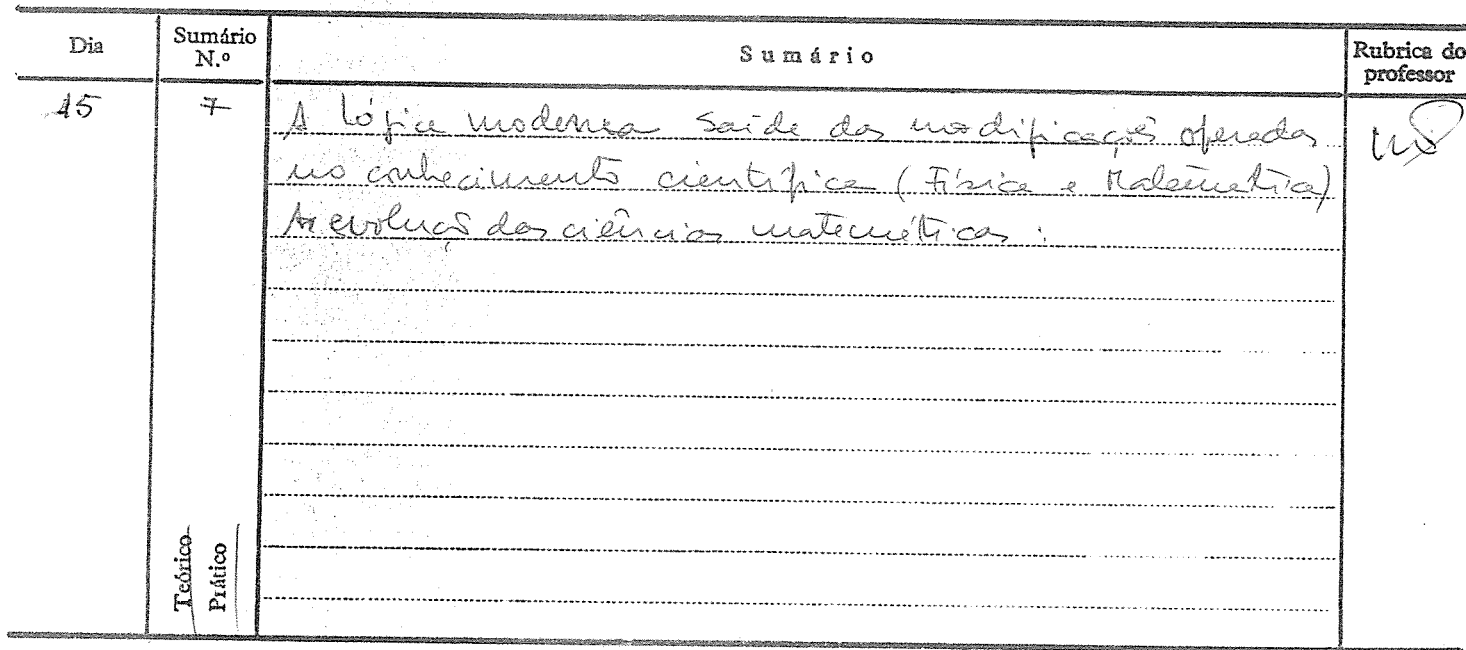 Dia Sumário N.º Sumário Rubrica do professor
15 7 A lógica moderna saíde das modificações operadas
no conhecimento científica (Física e Matemática)
A evolução das ciências matemáticas.
Teórico
Prático